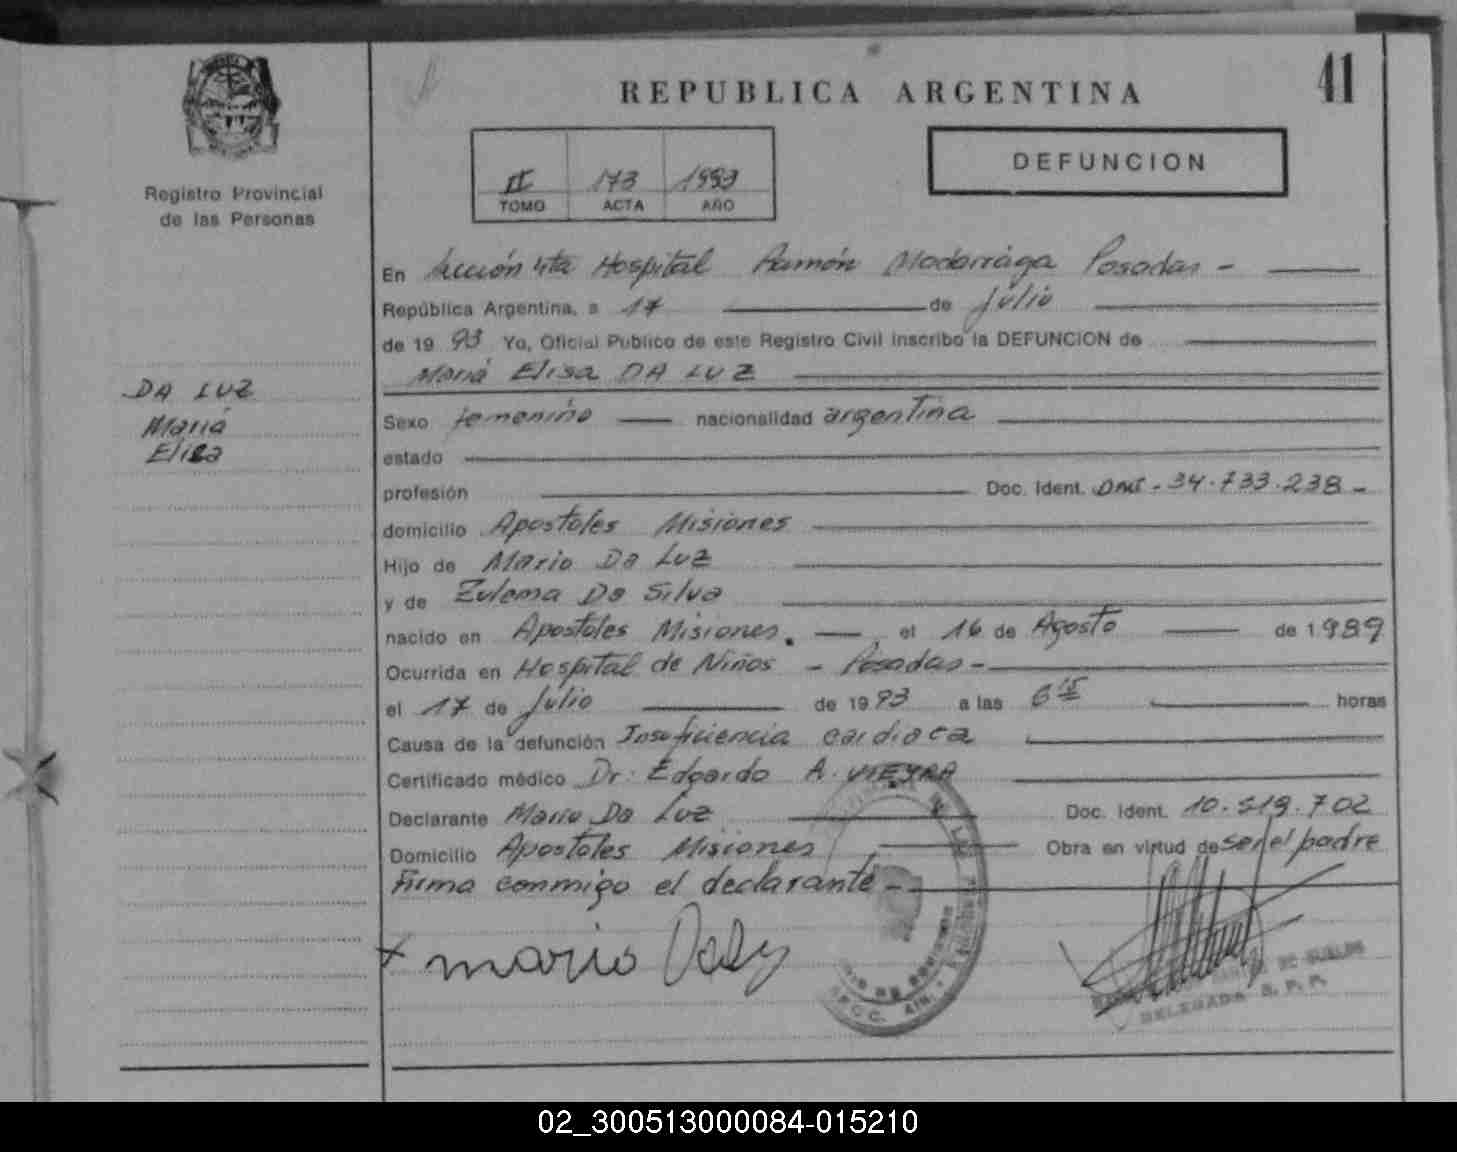 41
REPUBLICA ARGENTINA
DEFUNCION
II 173 1993
TOMO ACTA AÑO
Registro Provincial
de las Personas
DA LUZ
María
Elisa
En Sección 4ta Hospital Ramón Madarriaga Posadas -
República Argentina, a 17 de Julio
de 1993 Yo, Oficial Publico de este Registro Civil inscribo la DEFUNCION de
María Elisa DA LUZ
Sexo femenino nacionalidad argentina
estado
profesión Doc. Ident. DNI - 34.733.238 -
domicilio Apostoles Misiones
Hijo de Mario Da Luz
y de Zulema Da Silva
nacido en Apostoles Misiones. el 16 de Agosto de 1989
Ocurrida en Hospital de Niños - Posadas -
el 17 de Julio de 1993 a las 6 15 horas
Causa de la defunción Insuficiencia cardiaca
Certificado médico Dr. Edgardo A. VIEYRA
Declarante Mario Da Luz Doc. Ident. 10.519.702
Domicilio Apostoles Misiones Obra en virtud de ser el padre
Firma conmigo el declarante -
x mario
DELEGADA S. P. P.
02_300513000084-015210